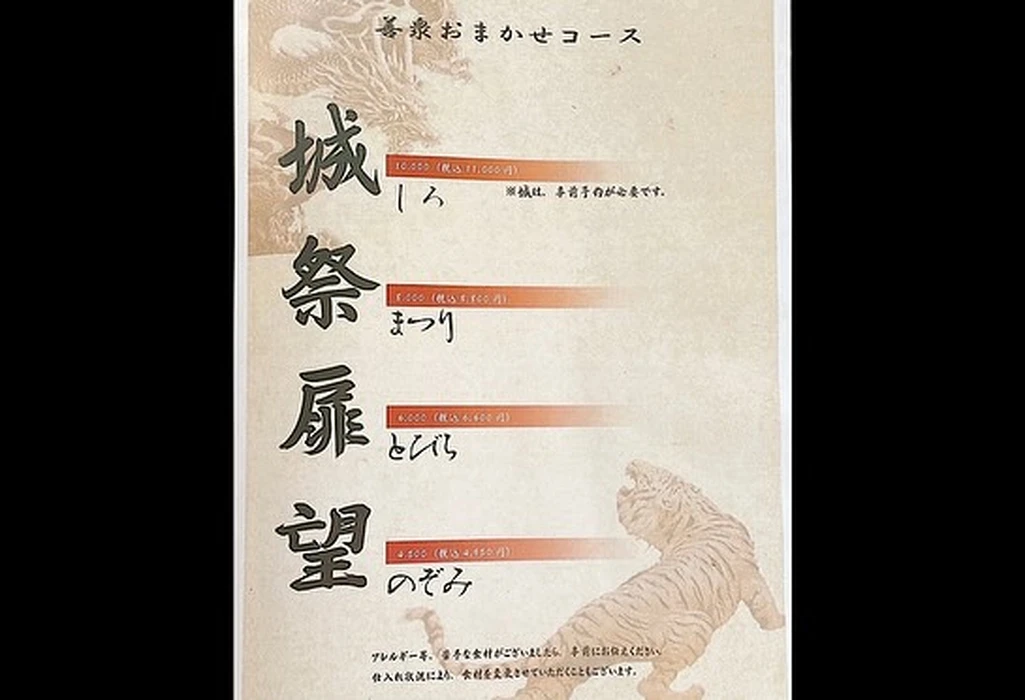 善泉おまかせコース
城
10,000 (税込 11,000円)
しろ
※城は、事前予約が必要です。
祭
8,000 (税込 8,800円)
まつり
扉
6,000 (税込 6,600円)
とびら
望
4,500 (税込 4,950円)
のぞみ
アレルギー等、苦手な食材がございましたら、事前にお伝えください。
仕入れ状況により、食材を変更させていただくこともございます。